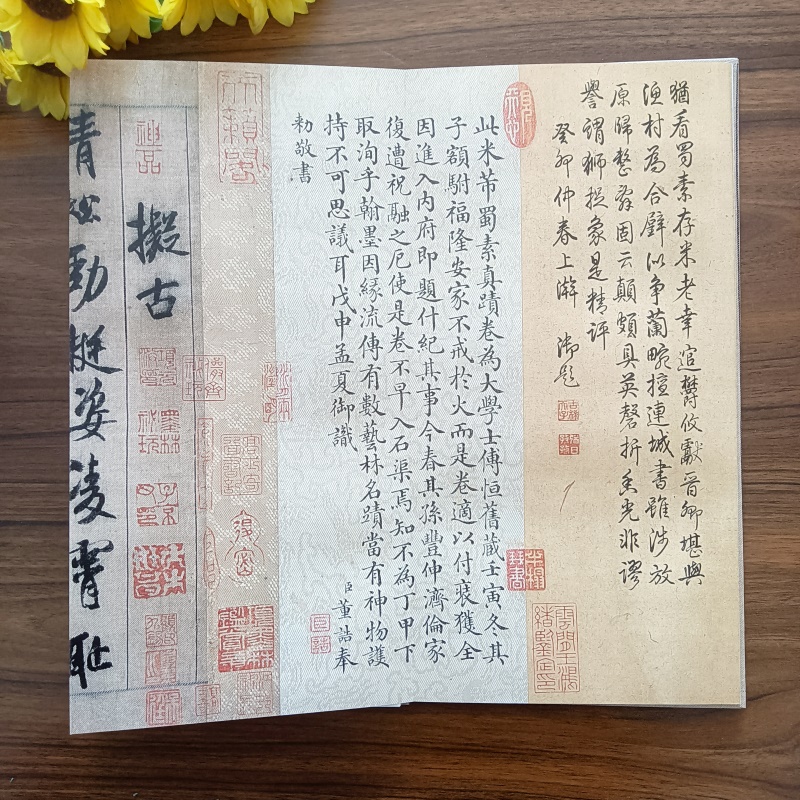 猶看蜀素存米老幸邀欝攸獻晉卿堪與
漁村為合璧以爭蘭畹擅連城書雖涉放
原歸整辭固云顛頗具英磬折香光非謬
譽謂獅捉象是精評
癸卯仲春上澣 御題
此米芾蜀素真蹟卷為大學士傅恒舊藏壬寅冬其
子額駙福隆安家不戒於火而是卷適以付裱獲全
因進入內府即題什紀其事今春其孫豐伸濟倫家
復遭祝融之厄使是卷不早入石渠焉知不為丁甲下
取洵乎翰墨因緣流傳有數藝林名蹟當有神物護
持不可思議耳戊申孟夏御識
臣董誥奉
勑敬書
擬古
青松勁挺姿凌霄恥